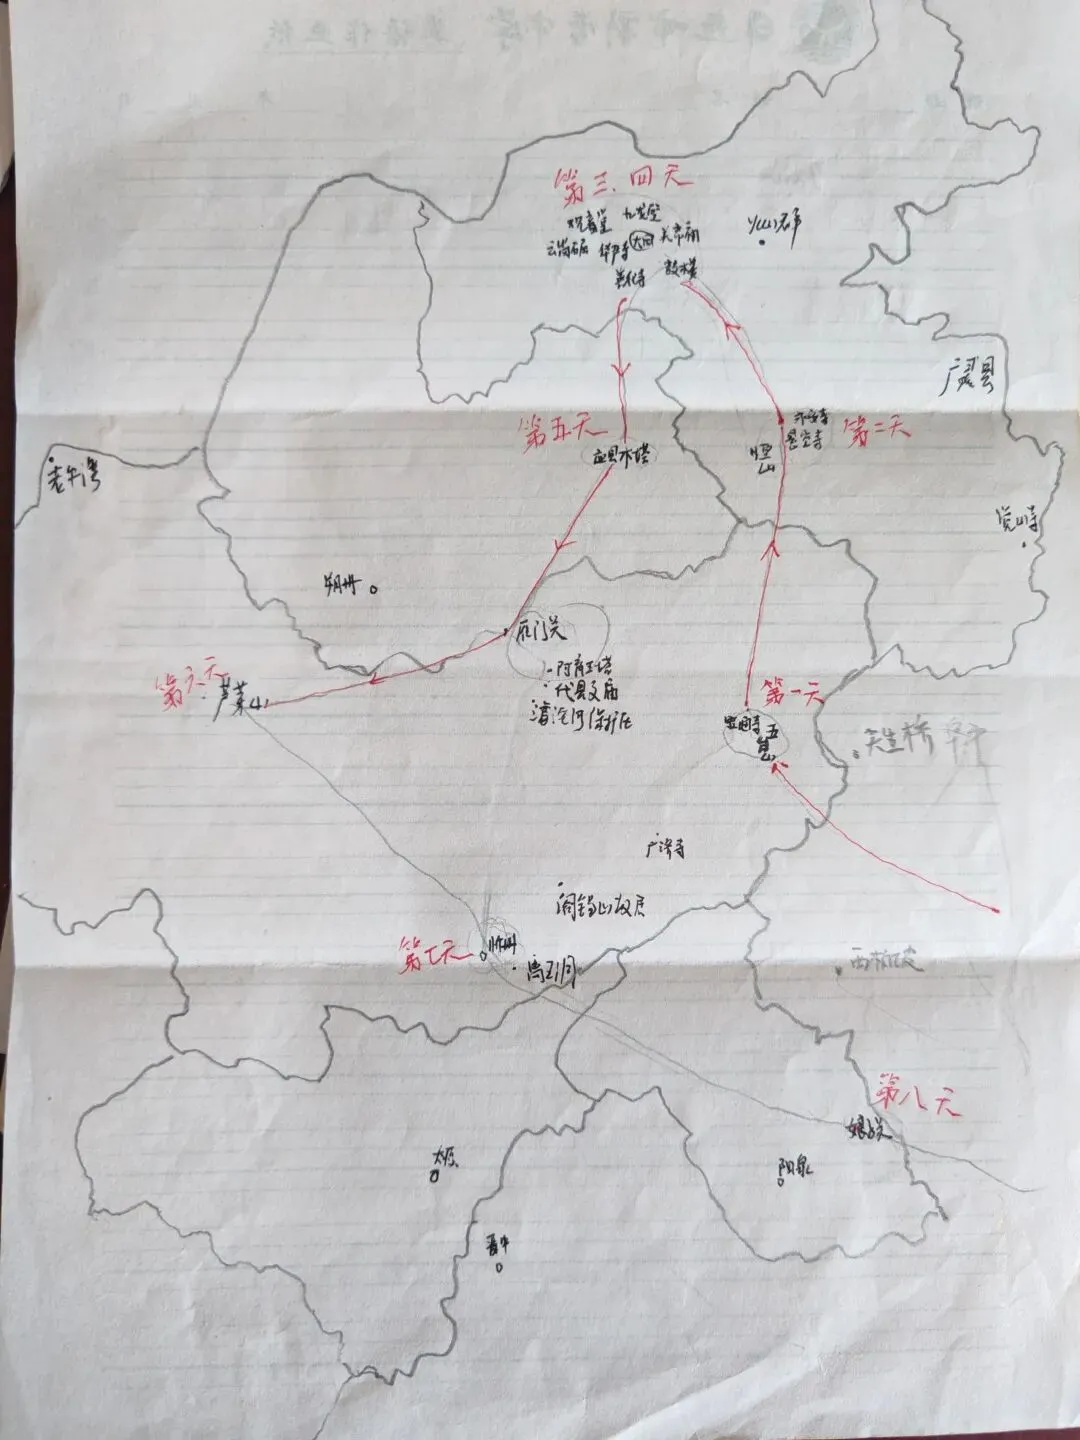 第三、四天
观音堂 九龙壁
云岗石窟 华严寺 大同 关帝庙
善化寺 鼓楼
火山群
广灵县
第五天
应县木塔
恒山
悬空寺
第二天
老牛湾
觉山寺
朔州
雁门关
阿育王塔
代县文庙
滹沱河保护区
第六天
芦芽山
第一天
五台山
天生桥 阜平
广济寺
阎锡山故居
第七天
忻州
禹王洞
西柏坡
第八天
娘子关
太原
阳泉
晋中